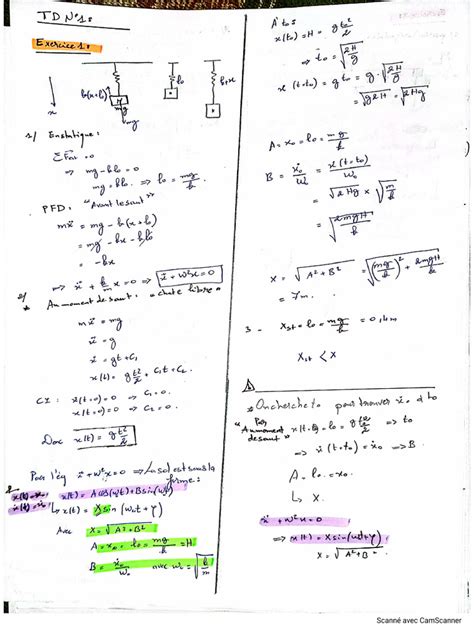 TD N°1:
Exercice 1:
k(x+l₀)
mg
x
l₀
l₀+x
1/ En statique:
⇒ mg - kl₀ = 0
mg = kl₀ ⇒ l₀ = mg/k
PFD: "Avant le saut"
mẍ = mg - k(x+l₀)
= mg - kx - kl₀
= -kx
⇒ ẍ + k/m x = 0 ⇒ ẍ + ω²x = 0
2/ Au moment de saut: "chute libre"
mẍ = mg
ẍ = g
ẋ = gt + C₁
x(t) = gt²/2 + C₁t + C₂
CI: ẋ(t=0) = 0 ⇒ C₁ = 0
x(t=0) = 0 ⇒ C₂ = 0
Donc x(t) = gt²/2
Pour l'éq ẍ + ω²x = 0 ⇒ La sol est sous la
forme:
x(t) = A cos(ωt) + B sin(ωt)
↳ x(t) = X sin(ω₀t + φ)
Avec X = √(A² + B²)
A = x₀ = l₀ = mg/k = H
B = ẋ₀/ω₀ avec ω₀ = √(k/m)
A t₀:
x(t₀) = H = gt₀²/2
⇒ t₀ = √(2H/g)
ẋ(t=t₀) = gt₀ = g·√(2H/g)
= √(g2H) = √(2Hg)
A = x₀ = l₀ = mg/k
B = ẋ₀/ω₀ = ẋ(t=t₀)/ω₀
= √(2Hg) × √(m/k)
= √(2mgH/k)
X = √(A² + B²) = √((mg/k)² + 2mgH/k)
= 7m.
3 - Xst = l₀ = mg/k = 0,1m
Xst < X
On cherche t₀ pour trouver ẋ₀ à t₀
Par
"Au moment x(t=t₀) = l₀ = gt₀²/2 ⇒ t₀
de saut"
⇒ ẋ(t=t₀) = ẋ₀ → B
A = l₀ = x₀.
↳ X.
ẍ + ω²x = 0
⇒ x(t) = X sin(ωt + φ)
X = √(A² + B²)
Scanné avec CamScanner